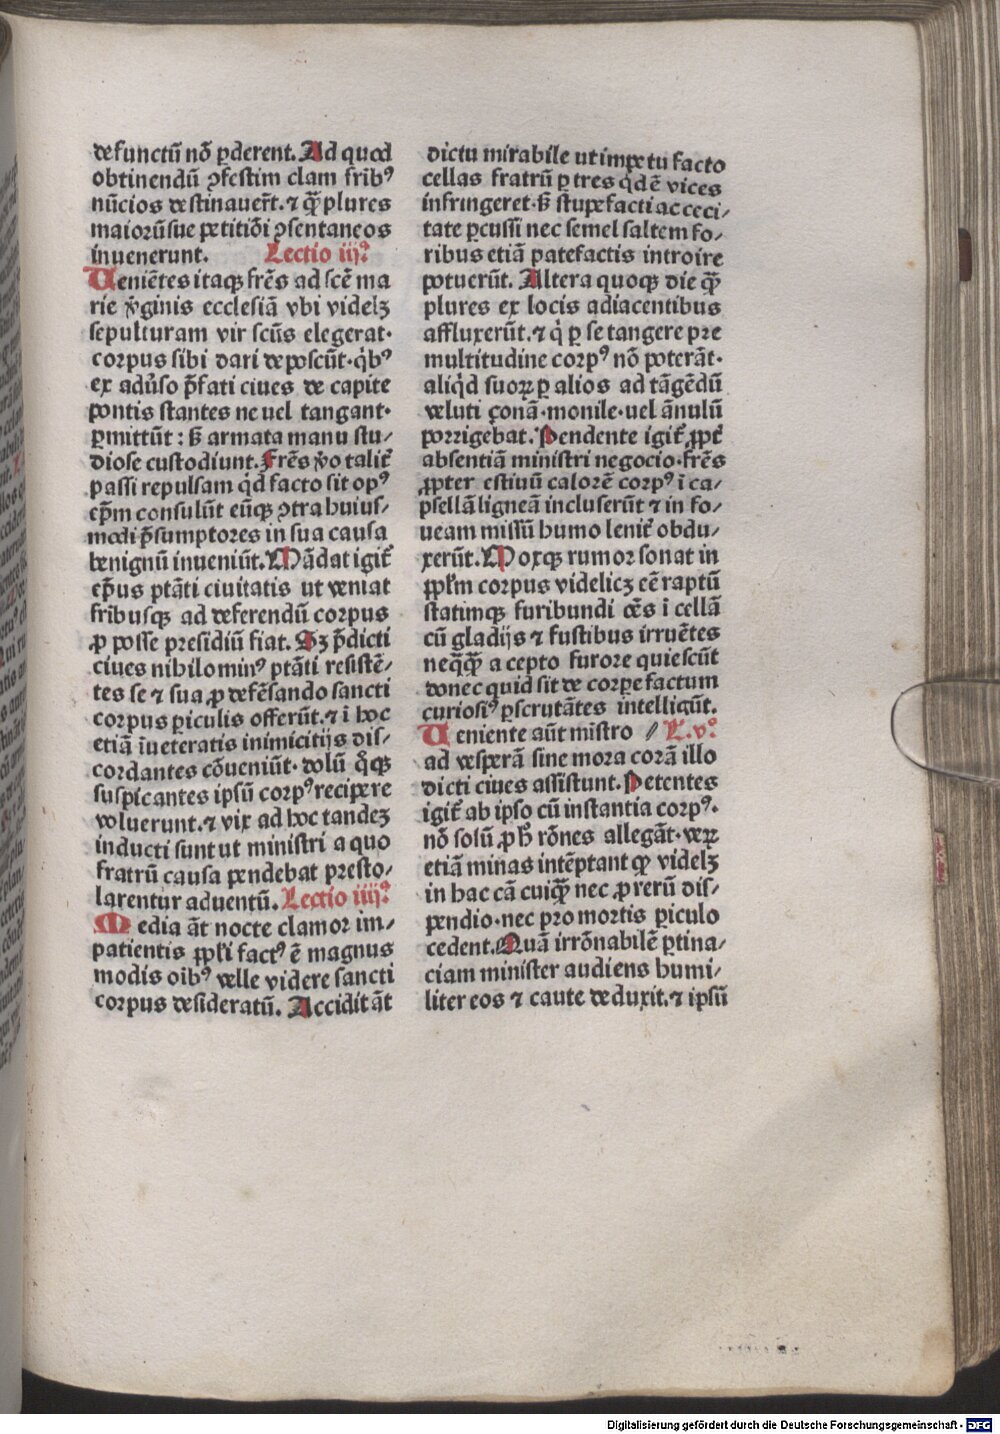 defunctū nō ꝑderent. Ad quod
obtinendū ꝯfestim clam frībꝰ
nūcios destinauer̄t. ⁊ qͣꝫ plures
maiorū sue petitiōi ꝯsentaneos
inuenerunt. Lectio iijͣ.
Ueniētes itaqꝫ frēs ad scē ma
rie v̓ginis ecclesiā vbi videlꝫ
sepulturam vir scūs elegerat·
corpus sibi dari deposcūt· qͥbꝰ
ex adūso p̄fati ciues de capite
pontis stantes ne uel tangant·
ꝑmittūt : sꝫ armata manu stu⸗
diose custodiunt. Frēs v̓o talit̄
passi repulsam qͥd facto sit opꝰ
ep̄m consulūt eūqꝫ ꝯtra huius⸗
modi p̄sumptores in sua causa
benignū inueniūt. Mādat igit̄
ep̄us ptāti ciuitatis ut veniat
fribusqꝫ ad deferendū corpus
ꝓ posse presidiū fiat. Sꝫ p̄dicti
ciues nihilominꝰ ptāti resistē⸗
tes se ⁊ sua ꝓ defēsando sancti
corpus ꝑiculis offerūt. ⁊ ī hoc
etiā īueteratis inimicitijs dis⸗
cordantes cōueniūt· dolū qͦqꝫ
suspicantes ipsū corpꝰ recipere
voluerunt. ⁊ vix ad hoc tandeꝫ
inducti sunt ut ministri a quo
fratrū causa pendebat presto⸗
larentur aduentū. Lectio iiijͣ.
Media āt nocte clamor im⸗
patientis ppl̄i factꝰ ē magnus
modis oībꝰ velle videre sancti
corpus desideratū. Accidit āt
dictu mirabile ut impetu facto
cellas fratrū ꝑ tres qͥdē vices
infringeret· sꝫ stupefacti ac ceci⸗
tate ꝑcussi nec semel saltem fo⸗
ribus etiā patefactis introire
potuerūt. Altera quoqꝫ die qͣꝫ
plures ex locis adiacentibus
affluxerūt. ⁊ qͥ ꝑ se tangere pre
multitudine corpꝰ nō poterāt·
aliqͥd suoꝝ ꝑ alios ad tāgēdū
veluti çonā· monile· uel ānulū
porrigebāt. Pendente igit̄ ꝓpt̄
absentiā ministri negocio· frēs
ꝓpter estiuū calorē corpꝰ ī ca⸗
psellā ligneā incluserūt ⁊ in fo⸗
ueam missū humo lenit̄ obdu⸗
xerūt. Moxqꝫ rumor sonat in
ppl̄m corpus videlicꝫ eē raptū
statimqꝫ furibundi oēs ī cellā
cū gladijs ⁊ fustibus irruētes
neqͣqͣꝫ a cepto furore quiescūt
donec quid sit de corpore factum
curiosiꝰ ꝑscrutātes intelligūt.
Ueniente aūt mīstro // L. vͣ.
ad vesperā sine mora corā illo
dicti ciues assistunt. Petentes
igit̄ ab ipso cū instantia corpꝰ·
nō solū ꝓ hͦ rōnes allegāt· veꝝ
etiā minas intēptant qꝙ videlꝫ
in hac cā cuiqͣꝫ nec ꝓ rerū dis⸗
pendio· nec pro mortis ꝑiculo
cedent. Quā irrōnabilē ꝑtina⸗
ciam minister audiens humi⸗
liter eos ⁊ caute deduxit. ⁊ ipsū
Digitalisierung gefördert durch die Deutsche Forschungsgemeinschaft - DFG